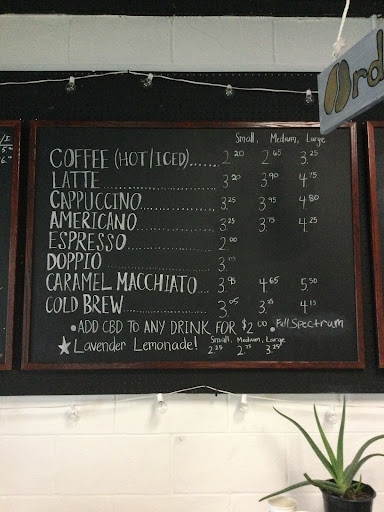 Ord
Small, Medium, Large
COFFEE (HOT/ICED)...... 2.20 2.65 3.25
LATTE 3.20 3.90 4.75
CAPPUCCINO 3.25 3.95 4.80
AMERICANO 3.25 3.75 4.25
ESPRESSO 2.00
DOPPIO
CARAMEL MACCHIATO 3.95 4.65 5.50
COLD BREW 3.05 4.15
• ADD CBD TO ANY DRINK FOR $2.00 • Full Spectrum
Small, Medium, Large
★ Lavender Lemonade! 2.25 2.75 3.25